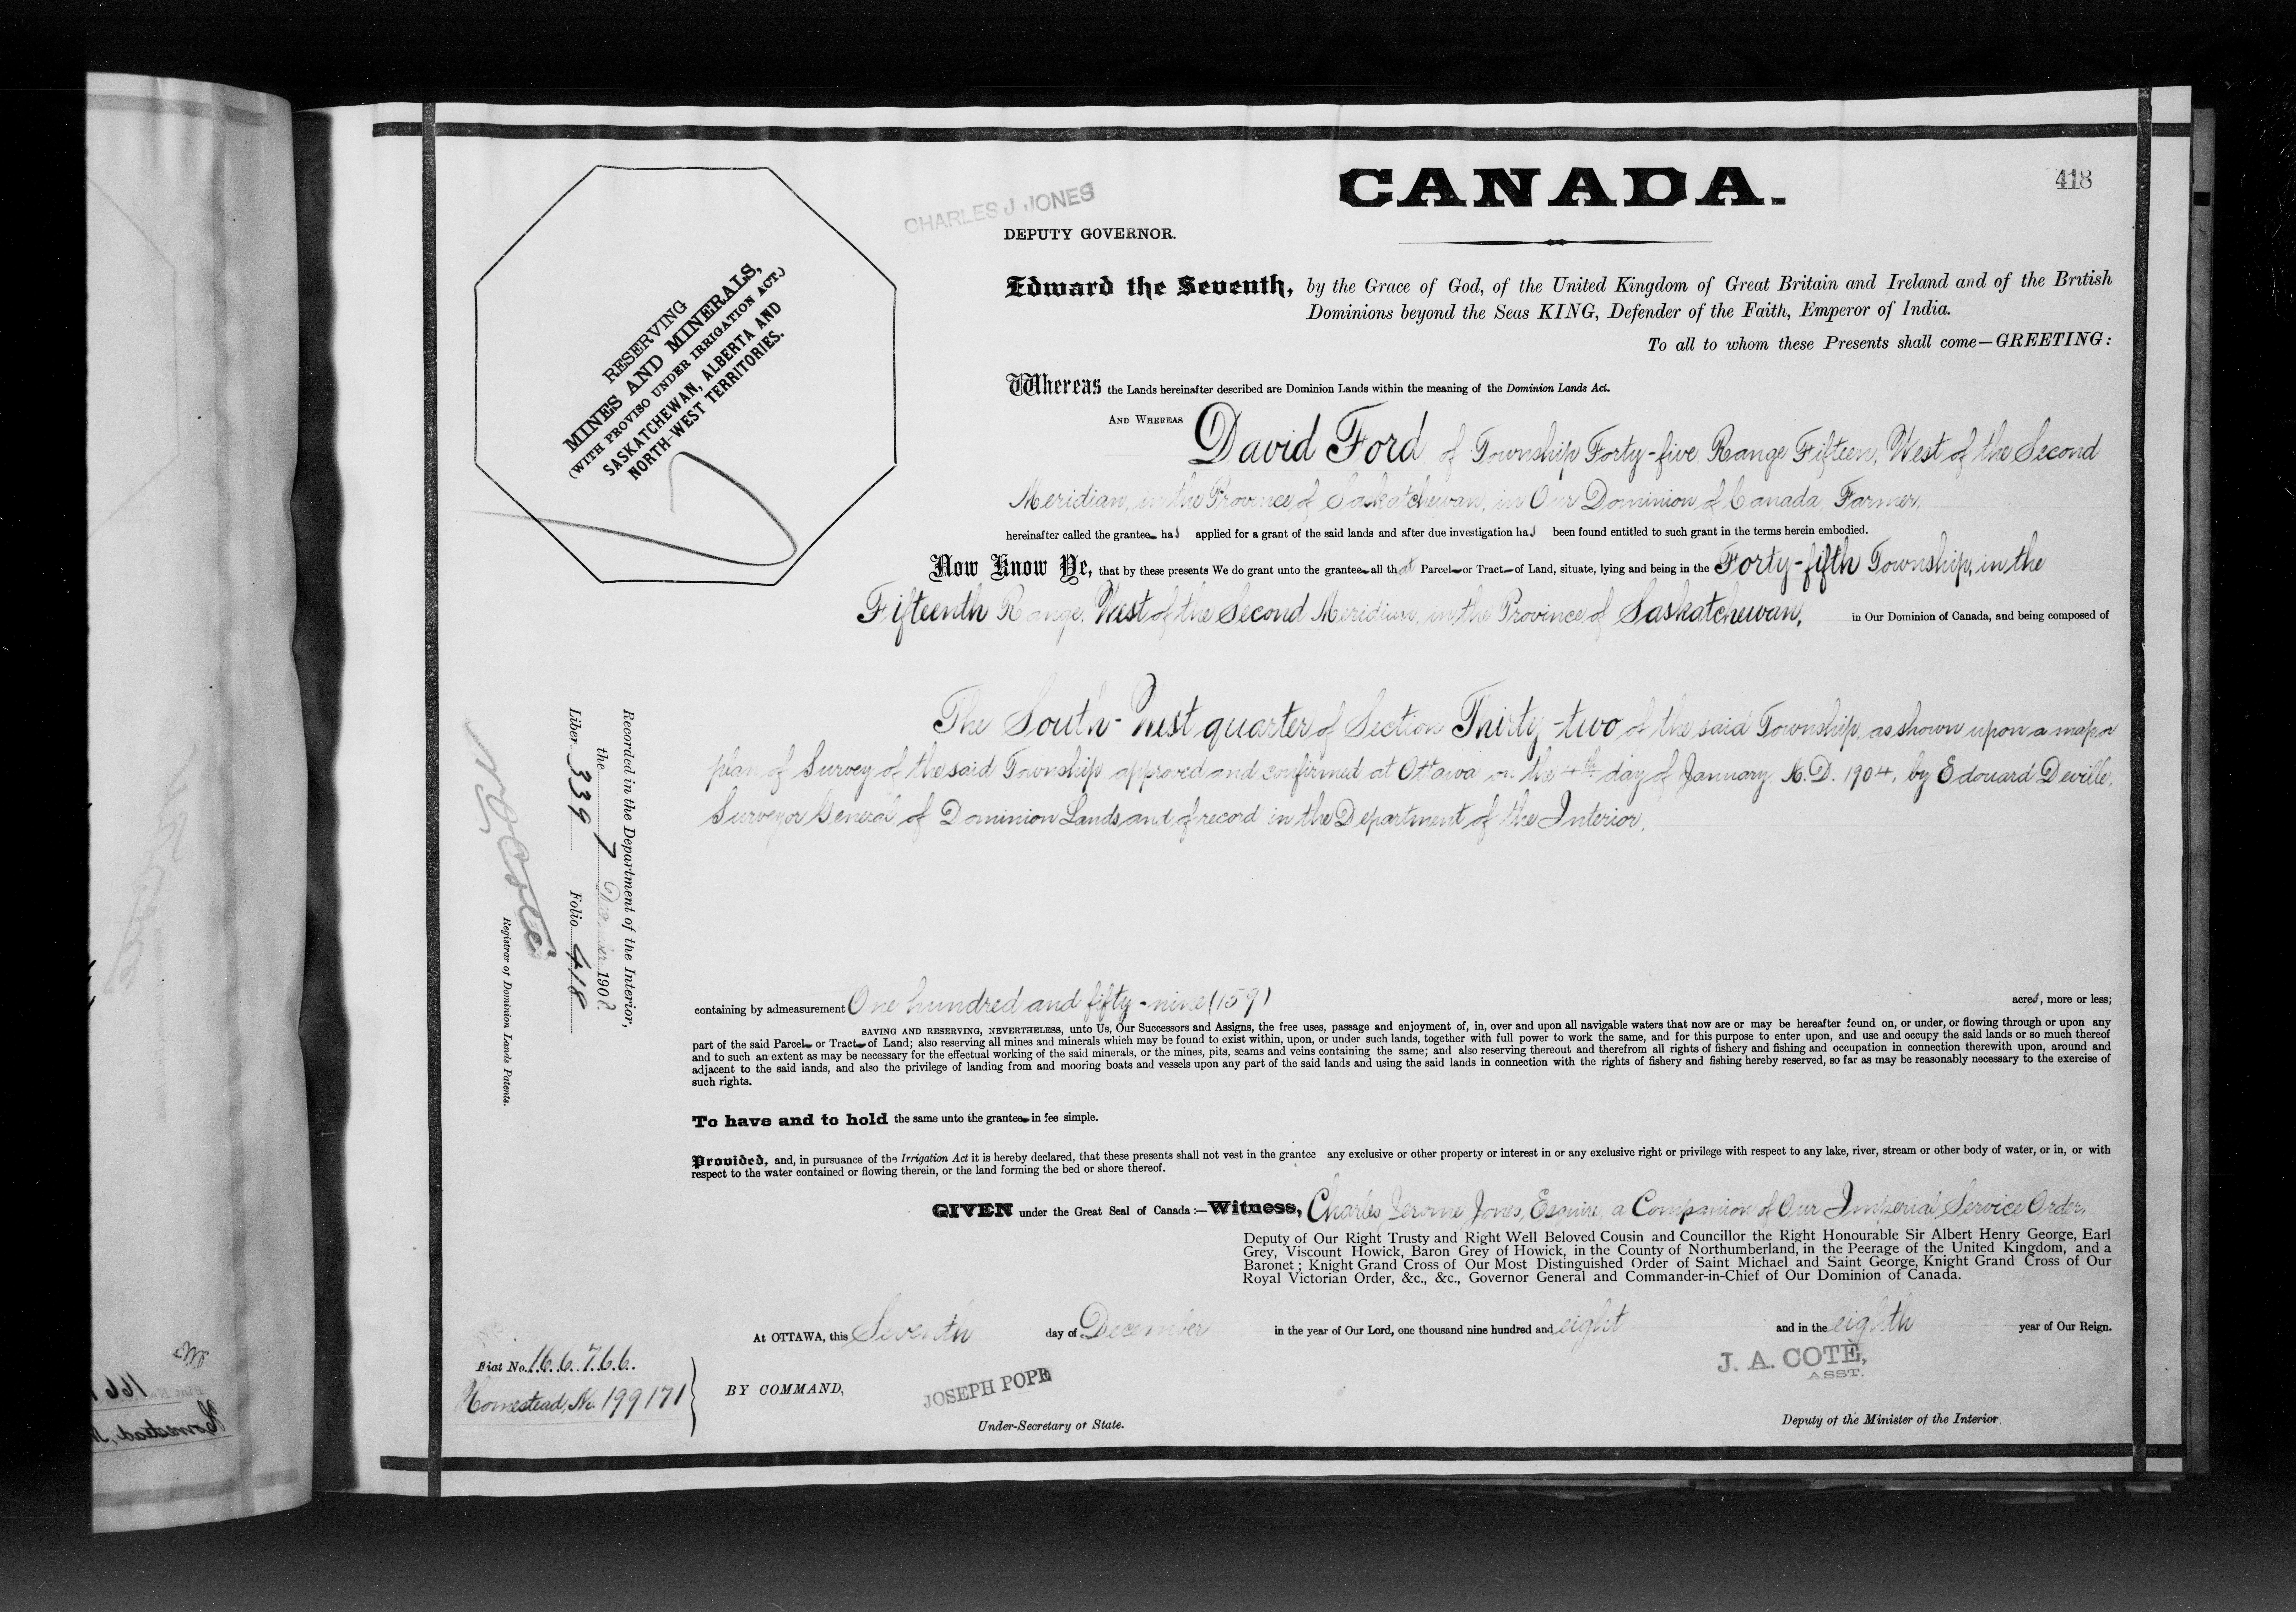 418
CANADA.
CHARLES J JONES
DEPUTY GOVERNOR.
RESERVING
MINES AND MINERALS,
(WITH PROVISO UNDER IRRIGATION ACT.)
SASKATCHEWAN, ALBERTA AND
NORTH-WEST TERRITORIES.
Edward the Seventh, by the Grace of God, of the United Kingdom of Great Britain and Ireland and of the British
Dominions beyond the Seas KING, Defender of the Faith, Emperor of India.
To all to whom these Presents shall come—GREETING:
Whereas the Lands hereinafter described are Dominion Lands within the meaning of the Dominion Lands Act.
AND WHEREAS David Ford of Township Forty-five, Range Fifteen, West of the Second
Meridian, in the Province of Saskatchewan, in Our Dominion of Canada, Farmer,
hereinafter called the grantee has applied for a grant of the said lands and after due investigation has been found entitled to such grant in the terms herein embodied.
Now Know Ye, that by these presents We do grant unto the grantee all that Parcel or Tract of Land, situate, lying and being in the Forty-fifth Township, in the
Fifteenth Range, West of the Second Meridian, in the Province of Saskatchewan, in Our Dominion of Canada, and being composed of
The South-West quarter of Section Thirty-two of the said Township, as shown upon a map or
plan of Survey of the said Township approved and confirmed at Ottawa on the 4th day of January, A.D. 1904, by Edouard Deville,
Surveyor General of Dominion Lands and of record in the Department of the Interior,
containing by admeasurement One hundred and fifty-nine (159) acres, more or less;
SAVING AND RESERVING, NEVERTHELESS, unto Us, Our Successors and Assigns, the free uses, passage and enjoyment of, in, over and upon all navigable waters that now are or may be hereafter found on, or under, or flowing through or upon any
part of the said Parcel or Tract of Land; also reserving all mines and minerals which may be found to exist within, upon, or under such lands, together with full power to work the same, and for this purpose to enter upon, and use and occupy the said lands or so much thereof
and to such an extent as may be necessary for the effectual working of the said minerals, or the mines, pits, seams and veins containing the same; and also reserving thereout and therefrom all rights of fishery and fishing and occupation in connection therewith upon, around and
adjacent to the said lands, and also the privilege of landing from and mooring boats and vessels upon any part of the said lands and using the said lands in connection with the rights of fishery and fishing hereby reserved, so far as may be reasonably necessary to the exercise of
such rights.
To have and to hold the same unto the grantee in fee simple.
Provided, and, in pursuance of the Irrigation Act it is hereby declared, that these presents shall not vest in the grantee any exclusive or other property or interest in or any exclusive right or privilege with respect to any lake, river, stream or other body of water, or in, or with
respect to the water contained or flowing therein, or the land forming the bed or shore thereof.
GIVEN under the Great Seal of Canada :—Witness, Charles Jerome Jones, Esquire, a Companion of Our Imperial Service Order,
Deputy of Our Right Trusty and Right Well Beloved Cousin and Councillor the Right Honourable Sir Albert Henry George, Earl
Grey, Viscount Howick, Baron Grey of Howick, in the County of Northumberland, in the Peerage of the United Kingdom, and a
Baronet ; Knight Grand Cross of Our Most Distinguished Order of Saint Michael and Saint George, Knight Grand Cross of Our
Royal Victorian Order, &c., &c., Governor General and Commander-in-Chief of Our Dominion of Canada.
At OTTAWA, this Seventh day of December in the year of Our Lord, one thousand nine hundred and eight and in the eighth year of Our Reign.
BY COMMAND,
JOSEPH POPE
Under-Secretary of State.
J. A. COTE,
ASST.
Deputy of the Minister of the Interior.
Fiat No. 166766.
Homestead, No. 199171
Recorded in the Department of the Interior,
the 7 December 1908
Liber 339 Folio 418
Registrar of Dominion Lands Patents.